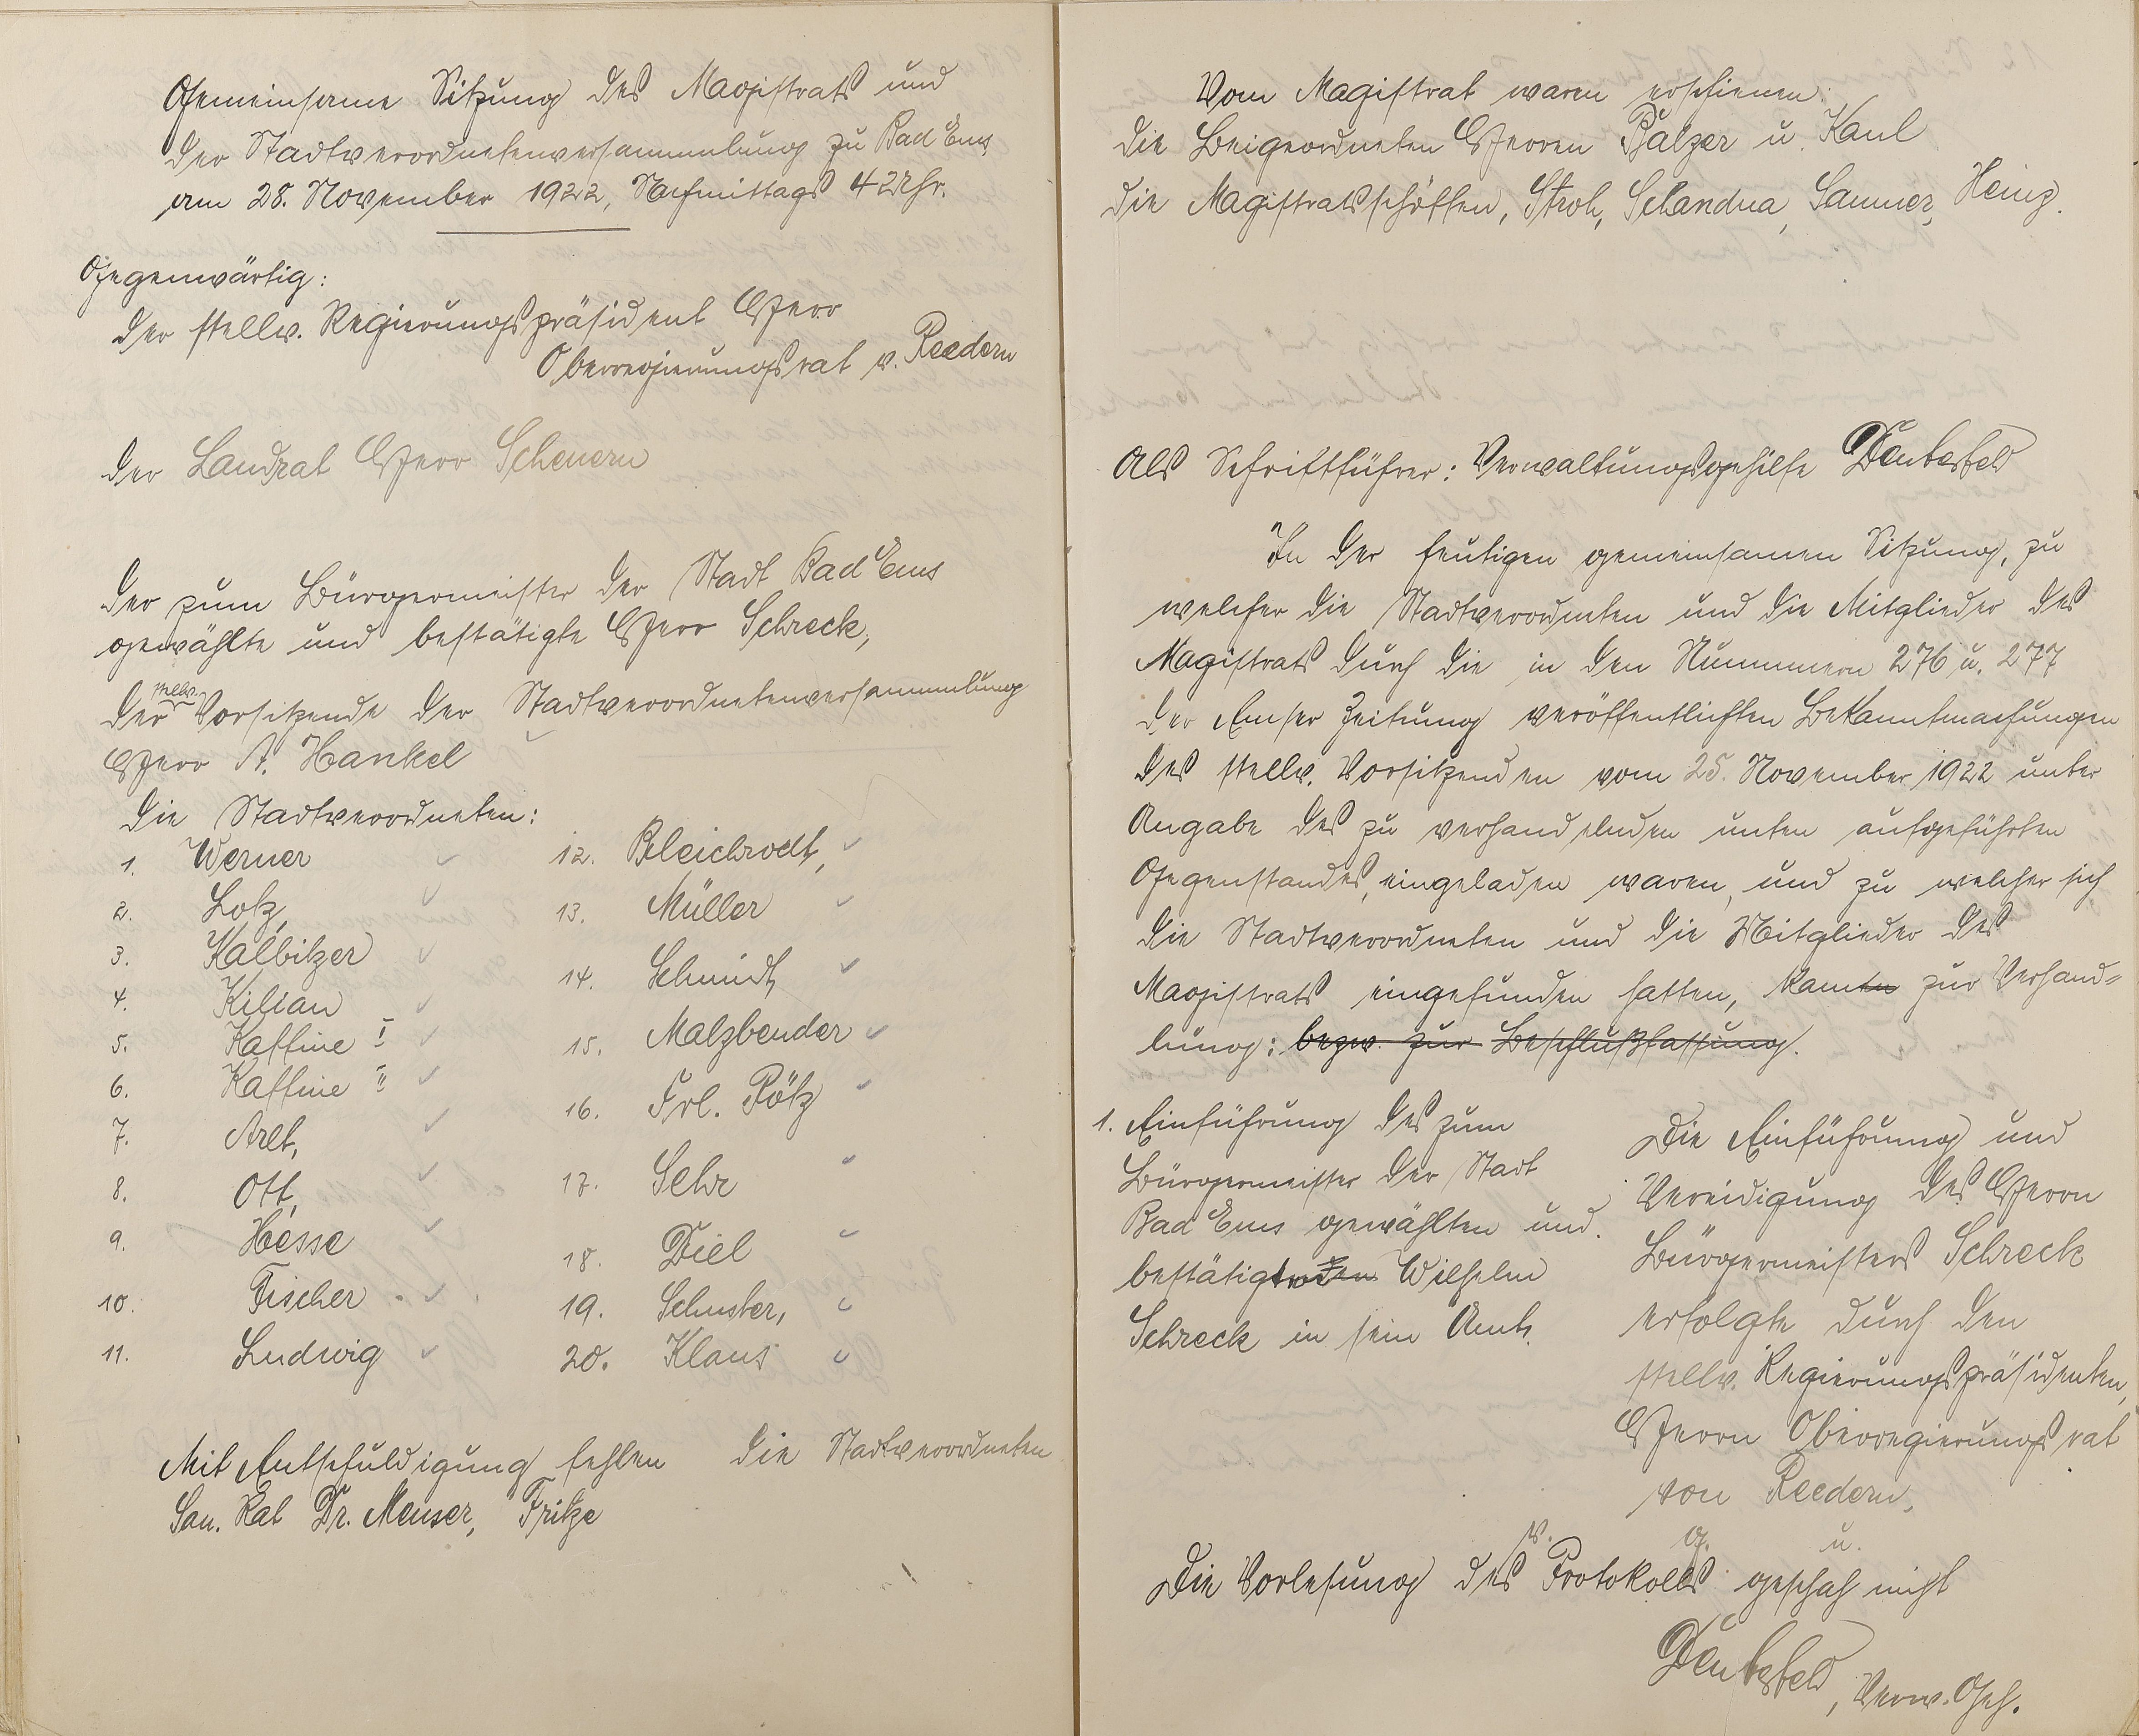 Gemeinsame Sitzung des Magistrats und
der Stadtverordnetenversammlung zu Bad Ems
am 28. November 1922, Nachmittags 4 Uhr.
Gegenwärtig:
der stellv. Regierungspräsident Herr
Oberregierungsrat v. Reedern
der Landrat Herr Scheuern
der zum Bürgermeister der Stadt Bad Ems
gewählte und bestätigte Herr Schreck,
der stellv. Vorsitzende der Stadtverordnetenversammlung
Herr A. Hankel
die Stadtverordneten:
1. Werner
2. Lotz,
3. Kalbitzer
4. Kilian
5. Kaffine I
6. Kaffine II
7. Arlt,
8. Ott,
9. Hesse
10. Fischer
11. Ludwig
12. Bleichrodt,
13. Müller
14. Schmidt,
15. Malzbender
16. Frl. Pötz
17. Sehr
18. Diel
19. Schuster,
20. Klaus
Mit Entschuldigung fehlen die Stadtverordneten
San. Rat Dr. Meuser, Fritze
Vom Magistrat waren erschienen:
die Beigeordneten Herren Balzer u. Kaul
die Magistratsschöffen, Stroh, Schandua, Sanner, Heinz.
Als Schriftführer: Verwaltungsgehilfe Deutesfeld
In der heutigen gemeinsamen Sitzung, zu
welcher die Stadtverordneten und die Mitglieder des
Magistrats durch die in den Nummern 276 u. 277
der Emser Zeitung veröffentlichten Bekanntmachungen
des stellv. Vorsitzenden vom 25. November 1922 unter
Angabe des zu verhandelnden unten aufgeführten
Gegenstandes, eingeladen waren, und zu welcher sich
die Stadtverordneten und die Mitglieder des
Magistrats eingefunden hatten, kamen zur Verhand-
lung: bezw. zur Beschlußfassung.
1. Einführung des zum
Bürgermeister der Stadt
Bad Ems gewählten und
bestätigten Wilhelm
Schreck in sein Amt.
Die Einführung und
Vereidigung des Herrn
Bürgermeisters Schreck
erfolgte durch den
stellv. Regierungspräsidenten,
Herrn Oberregierungsrat
von Reedern.
v. g. u.
Die Vorlesung des Protokolls geschah nicht
Deutesfeld, Verw. Geh.